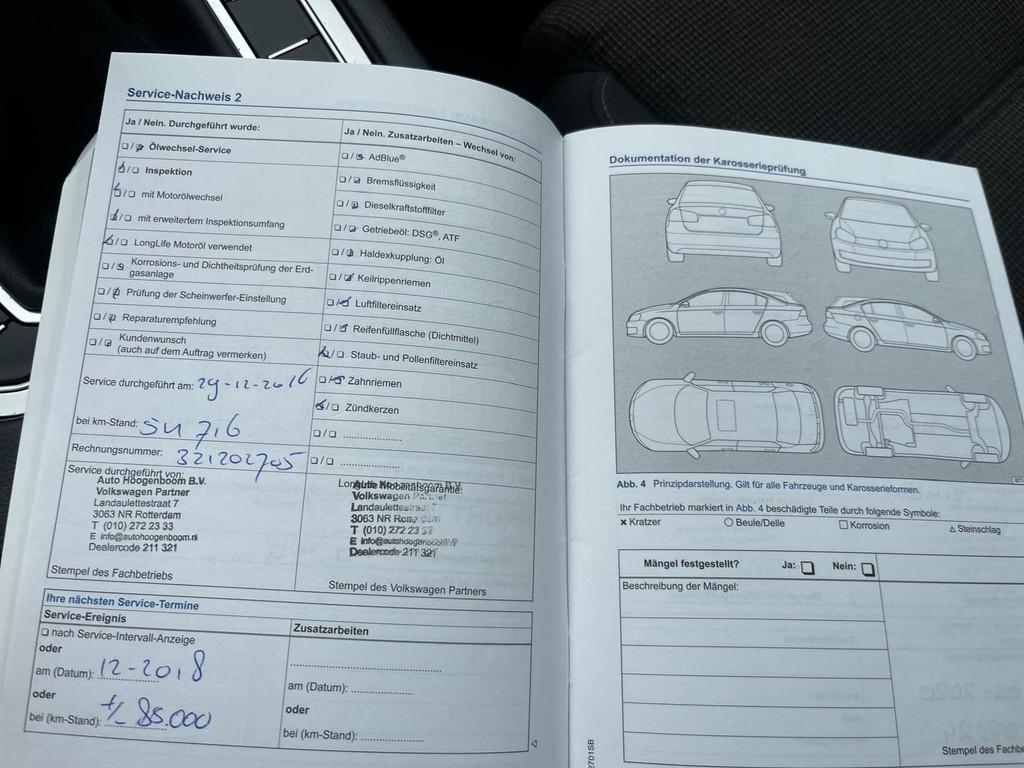 Service-Nachweis 2
Ja / Nein. Durchgeführt wurde:
Ölwechsel-Service
Inspektion
mit Motorölwechsel
mit erweitertem Inspektionsumfang
LongLife Motoröl verwendet
Korrosions- und Dichtheitsprüfung der Erd-
gasanlage
Prüfung der Scheinwerfer-Einstellung
Reparaturempfehlung
Kundenwunsch
(auch auf dem Auftrag vermerken)
Service durchgeführt am: 29-12-2016
bei km-Stand:
Rechnungsnummer: 321202705
Service durchgeführt von:
Auto Hoogenboom B.V.
Volkswagen Partner
Landaulettestraat 7
3063 NR Rotterdam
T (010) 272 23 33
E info@autohoogenboom.nl
Dealercode 211 321
Stempel des Fachbetriebs
Ja / Nein. Zusatzarbeiten – Wechsel von:
AdBlue®
Bremsflüssigkeit
Dieselkraftstofffilter
Getriebeöl: DSG®, ATF
Haldexkupplung: Öl
Keilrippenriemen
Luftfiltereinsatz
Reifenfüllflasche (Dichtmittel)
Staub- und Pollenfiltereinsatz
Zahnriemen
Zündkerzen
Volkswagen Partner
Landaulettestraat 7
3063 NR Rotterdam
T (010) 272 23 33
Dealercode 211 321
Stempel des Volkswagen Partners
Ihre nächsten Service-Termine
Service-Ereignis
nach Service-Intervall-Anzeige
oder
am (Datum): 12-2018
oder
bei (km-Stand): +/- 85.000
Zusatzarbeiten
am (Datum):
oder
bei (km-Stand):
Dokumentation der Karosserieprüfung
Abb. 4 Prinzipdarstellung. Gilt für alle Fahrzeuge und Karosserieformen.
Ihr Fachbetrieb markiert in Abb. 4 beschädigte Teile durch folgende Symbole:
× Kratzer ○ Beule/Delle □ Korrosion △ Steinschlag
Mängel festgestellt? Ja: Nein:
Beschreibung der Mängel:
2701SB
Stempel des Fachbe